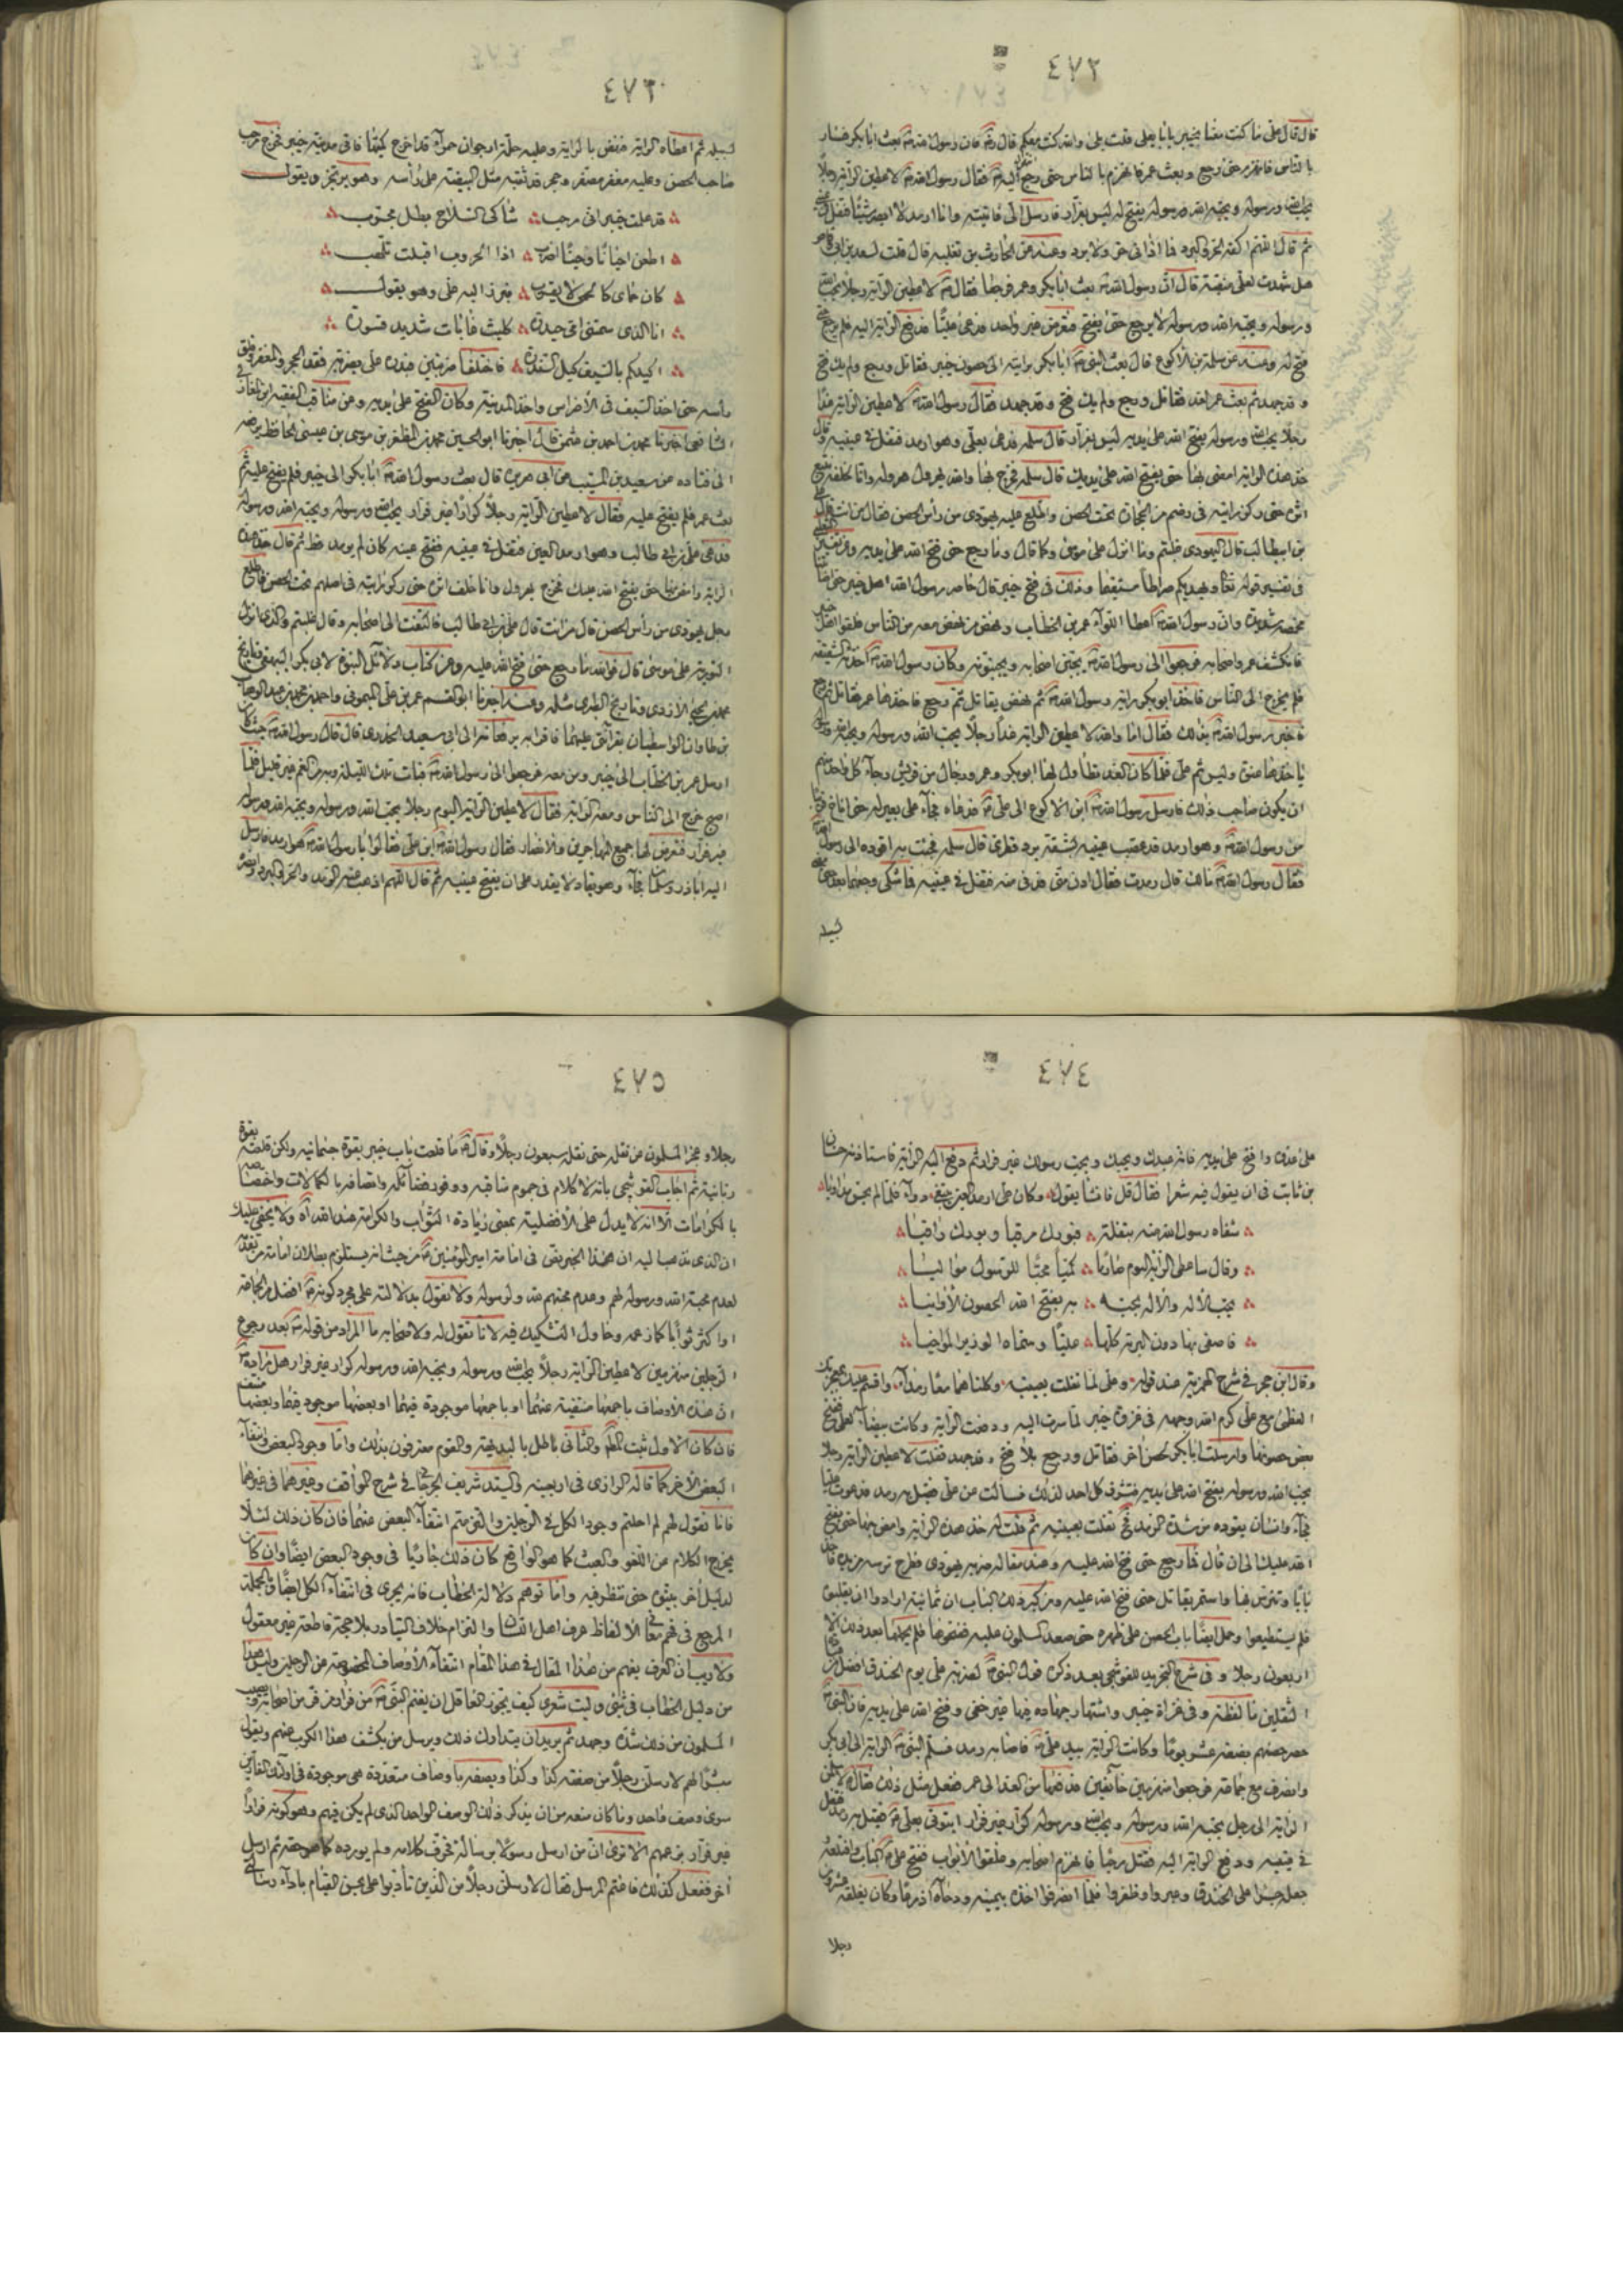 ٤٧٢
قال قال علي ما كنت معنا بخيبر يا أبا ليلى قلت بلى والله كنت معكم قال فان رسول الله بعث ابا بكر فسار
بالناس فانهزم حتى رجع وبعث عمر فانهزم بالناس حتى رجع اليه فقال رسول الله لاعطين الراية رجلا
يحب الله ورسوله ويحبه الله ورسوله يفتح له ليس بفرار فارسل الي فاتيته وانا ارمد لا ابصر شيئا فتفل
ثم قال اللهم اكفه الحر والبرد فما اذاني حر ولا برد وعنه عن الحارث بن ثعلبه قال قلت لسعد بن ابي
هل شهدت لعلي منقبة قال ان رسول الله بعث ابا بكر وعمر فرجعا فقال لاعطين الراية رجلا يحب الله
ورسوله ويحبه الله ورسوله لا يرجع حتى يفتح
فتح له وعنه عن سلمة بن الاكوع قال بعث النبي ابا بكر برايته الى حصون خيبر فقاتل ورجع ولم يك فتح
وقد جهد ثم بعث عمر الغد فقاتل ورجع ولم يك فتح وقد جهد فقال رسول الله لاعطين الراية غدا
رجلا يحب الله ورسوله يفتح الله على يديه ليس بفرار قال سلمه فدعى بعلي وهو ارمد فتفل في عينيه
خذ هذه الراية امض بها حتى يفتح الله على يديك قال سلمه فخرج بها والله يهرول هرولة وانا لخلفه
اثره حتى ركز رايته في رضم من الحجارة تحت الحصن واطلع عليه يهودي من رأس الحصن فقال من انت
بن ابيطالب قال اليهودي غلبتم وما انزل على موسى وكما قال وما رجع حتى فتح الله على يديه
في تفسير قوله تعالى ويهديكم صراطا مستقيما وذلك في فتح خيبر قال حاصر رسول الله اهل خيبر حتى
مخمصة شديدة وان رسول الله اعطا اللواء عمر بن الخطاب ونهض من نهض معه من الناس فلقوا اهل
فانكشف عمر واصحابه فرجعوا الى رسول الله يجبن اصحابه ويجبنونه وكان رسول الله
فلم يخرج الى الناس فاخذ ابو بكر راية رسول الله ثم نهض يقاتل ثم رجع فاخذها عمر فقاتل
فاخبر رسول الله بذلك فقال اما والله لاعطين الراية غدا رجلا يحب الله ورسوله ويحبه الله
ياخذها عنوة وليس ثم علي فلما كان الغد تطاول لها ابو بكر وعمر ورجال من قريش رجاء كل واحد منهم
ان يكون صاحب ذلك فارسل رسول الله ابن الاكوع الى علي فدعاه فجاء على بعير له حتى اناخ
من رسول الله وهو ارمد قد عصب عينيه بشقة برد قطري قال سلمه فجئت به اقوده الى رسول
فقال رسول الله مالك قال رمدت فقال ادن مني فدنى منه فتفل في عينيه فما شكى وجعهما بعد
لسبيله
٤٧٣
لسبيله ثم اعطاه الراية فنهض بالراية وعليه حلة ارجوان حمراء قد اخرج كميها فاتى مدينة خيبر فخرج مرحب
صاحب الحصن وعليه مغفر معصفر وحجر قد ثقبه مثل البيضة على رأسه وهو يرتجز ويقول
قد علمت خيبر اني مرحب شاكي السلاح بطل مجرب
اطعن احيانا وحينا اضرب اذا الحروب اقبلت تلهب
كان حماي كالحمى لا يقرب فبرز اليه علي وهو يقول
انا الذي سمتني امي حيدره كليث غابات شديد قسوره
اكيلكم بالسيف كيل السندره فاختلفا ضربتين فبدره علي بضربة فقد الحجر والمغفر وفلق
رأسه حتى اخذ السيف في الاضراس واخذ المدينة وكان الفتح على يديه وعن مناقب الفقيه ابن المغازلي
الشافعي اخبرنا محمد بن احمد بن عثمن قال اخبرنا ابو الحسين محمد بن المظفر بن موسى بن عيسى الحافظ
الى قتاده عن سعيد بن المسيب عن ابي هريره قال بعث رسول الله ابا بكر الى خيبر فلم يفتح عليه ثم
بعث عمر فلم يفتح عليه فقال لاعطين الراية رجلا كرارا غير فرار يحب الله ورسوله ويحبه الله ورسوله
فدعى علي بن ابي طالب وهو ارمد العين فتفل في عينيه ففتح عينه كان لم يرمد قط ثم قال خذ هذه
الراية وامض بها حتى يفتح الله عليك فخرج يهرول وانا خلف اثره حتى ركز رايته في اصلهم تحت الحصن فاطلع
رجل يهودي من رأس الحصن قال من انت قال علي بن ابي طالب فالتفت الى اصحابه وقال غلبتم والذي انزل
التورية على موسى قال فوالله ما رجع حتى فتح الله عليه وعن كتاب دلائل النبوة لابي بكر البيهقي
وتاريخ الطبري مثله وعنه اخبرنا ابو القسم عمر بن علي الميموني واحمد بن محمد بن عبد الوهاب
بن طاوان الواسطيان بقراءتي عليهما فاقرا به يرفعانه الى ابي سعيد الخدري قال قال رسول الله
ارسل عمر بن الخطاب الى خيبر ومن معه فرجعوا الى رسول الله فبات تلك الليلة وبه من الغم غير قليل فلما
اصبح خرج الى الناس ومعه الراية فقال لاعطين الراية اليوم رجلا يحب الله ورسوله ويحبه الله ورسوله
غير فرار فتعرض لها جميع المهاجرين والانصار فقال رسول الله اين علي فقالوا يا رسول الله هو ارمد فارسل
اليه اباذر وسلمان فجاء وهو يقاد لا يقدر على ان يفتح عينيه ثم قال اللهم اذهب عنه الرمد والحر والبرد وانصره
٤٧٤
على عدوه وافتح على يديه فانه عبدك ويحبك ويحب رسولك غير فرار ثم دفع اليه الراية فاستاذنه حسان
بن ثابت في ان يقول فيه شعرا فقال قل فانشا يقول وكان علي ارمد العين يبتغي دواء فلما لم يحس مداويا
شفاه رسول الله منه بتفلة فبورك مرقيا وبورك راقيا
وقال ساعطي الراية اليوم صارما كميا محبا للرسول مواليا
يحب الاله والاله يحبه به يفتح الله الحصون الاوابيا
فاصفى بها دون البرية كلها عليا وسماه الوزير المواخيا
وقال ابن حجر في شرح الهمزية عند قوله وعلي لما تفلت بعينيه وكلتاهما معا رمداء
مع علي كرم الله وجهه في غزوة خيبر لما سرت اليه ودفعت الراية وكانت بيضاء
بعض حصونها وارسلت ابا بكر لحصن اخر فقاتل ورجع بلا فتح وقد جهد فقلت لاعطين الراية رجلا
يحب الله ورسوله يفتح الله على يديه فتشوف كل احد لذلك فسالت عن علي فقيل به رمد فدعوت
فجاء وانسان يقوده من شدة الرمد تفلت بعينيه ثم قلت له خذ هذه الراية وامض بها حتى يفتح
الله عليك الى ان قال فما رجع حتى فتح الله عليه وعند مقاله ضربه يهودي فطرح ترسه من يده
بابا وتترس بها واستمر يقاتل حتى فتح الله عليه ومن كبر ذلك الباب ان ثمانية ارادوا ان يقلبوه
فلم يستطيعوا وحمل ايضا باب الحصن على ظهره حتى صعد المسلمون عليه ففتحوها فلم يحملها بعد ذلك الا
اربعون رجلا وفي شرح التجريد للقوشجي بعد ذكره قول النبي لضربة علي يوم الخندق افضل من
الثقلين ما لفظه وفي غزاة خيبر واشتهار جهاده فيها غير خفي وفتح الله على يديه فان النبي
حصر حصنهم بضعة عشر يوما وكانت الراية بيد علي فاصابه رمد فسلم النبي الراية الى ابي بكر
وانصرف مع جماعته فرجعوا منهزمين خائفين فدفعها من الغد الى عمر ففعل مثل ذلك فقال
الراية الى رجل يحبه الله ورسوله ويحب الله ورسوله كرار غير فرار ايتوني بعلي فقيل به رمد فتفل
في عينيه ودفع الراية اليه فقتل مرحبا فانهزم اصحابه وغلقوا الابواب ففتح علي الباب واقتلعه
وجعله جسرا على الخندق وعبروا وظفروا فلما انصرفوا اخذه بيمينه ودحاه اذرعا وكان يغلقه عشرون
رجلا
٤٧٥
رجلا وعجز المسلمون عن نقله حتى نقله سبعون رجلا وقال ما قلعت باب خيبر بقوة جسمانية ولكن قلعته بقوة
ربانية ثم اجاب القوشجي بانه لا كلام في عموم مناقبه ووفور فضائله واتصافه بالكمالات واختصاصه
بالكرامات الا انه لا يدل على الافضلية بمعنى زيادة الثواب والكرامة عند الله اه ولا يخفى عليك
ان الذي نذهب اليه ان هذا الخبر نص في امامة امير المؤمنين من حيث انه يستلزم بطلان امامة من تقدمه
لعدم محبة الله ورسوله لهم وعدم محبتهم لله ولرسوله ولا نقول بدلالته على مجرد كونه افضل من الجماعة
او اكثر ثوابا كما زعمه وحاول التشكيك فيه لانا نقول له ولاصحابه ما المراد من قوله بعد رجوع
الرجلين منهزمين لاعطين الراية رجلا يحب الله ورسوله ويحبه الله ورسوله كرار غير فرار هل اراد
ان هذه الاوصاف باجمعها منتفية عنهما او باجمعها موجودة فيهما او بعضها موجود فيهما وبعضها منتف
فان كان الاول ثبت المط والثاني باطل بالبديهة والقوم معترفون بذلك واما وجود البعض وانتفاء
البعض الاخر كما قاله الرازي في اربعينه والسيد شريف الجرجاني في شرح المواقف وغيرهما في غيرهما
فانا نقول لهم لم احلتم وجود الكل في الرجلين والتزمتم انتفاء البعض عنهما فان كان ذلك لئلا
يخرج الكلام عن اللغو والعبث كما هو الواقع كان ذلك جاريا في وجود البعض ايضا وان كان
لدليل اخر بينوه حتى ننظر فيه واما توهم دلالة الخطاب فانه يجري في انتفاء الكل ايضا وبالجملة
المرجع في فهم معاني الالفاظ عرف اهل اللسان والتزام خلاف المتبادر بلا حجة قاطعة غير معقول
ولا ريب ان العرف يفهم من هذا المقال في هذا المقام انتفاء الاوصاف المخصوصة عن الرجلين وليس هذا
من دليل الخطاب في شئ وليت شعري كيف يجوز العاقل ان يغتم النبي من فرار من فر من اصحابه
المسلمون من ذلك شدة وجهد ثم يريد ان يتدارك ذلك ويرسل من يكشف هذا الكرب عنهم ويقول
مبشرا لهم لارسلن رجلا من صفته كذا وكذا ويصفه باوصاف متعددة هي موجودة في اولئك الفارين
سوى وصف واحد وما كان منعه من ان يذكر ذلك الوصف الواحد الذي لم يكن فيهم وهو كونه
غير فرار بزعمهم الا ترى ان من ارسل رسولا برسالة فحرف كلامه ولم يورده كما هو حقه ثم ارسل
اخر ففعل كذلك فاغتم المرسل فقال لارسلن رجلا من الذين تأدبوا على يحسن القيام باداء